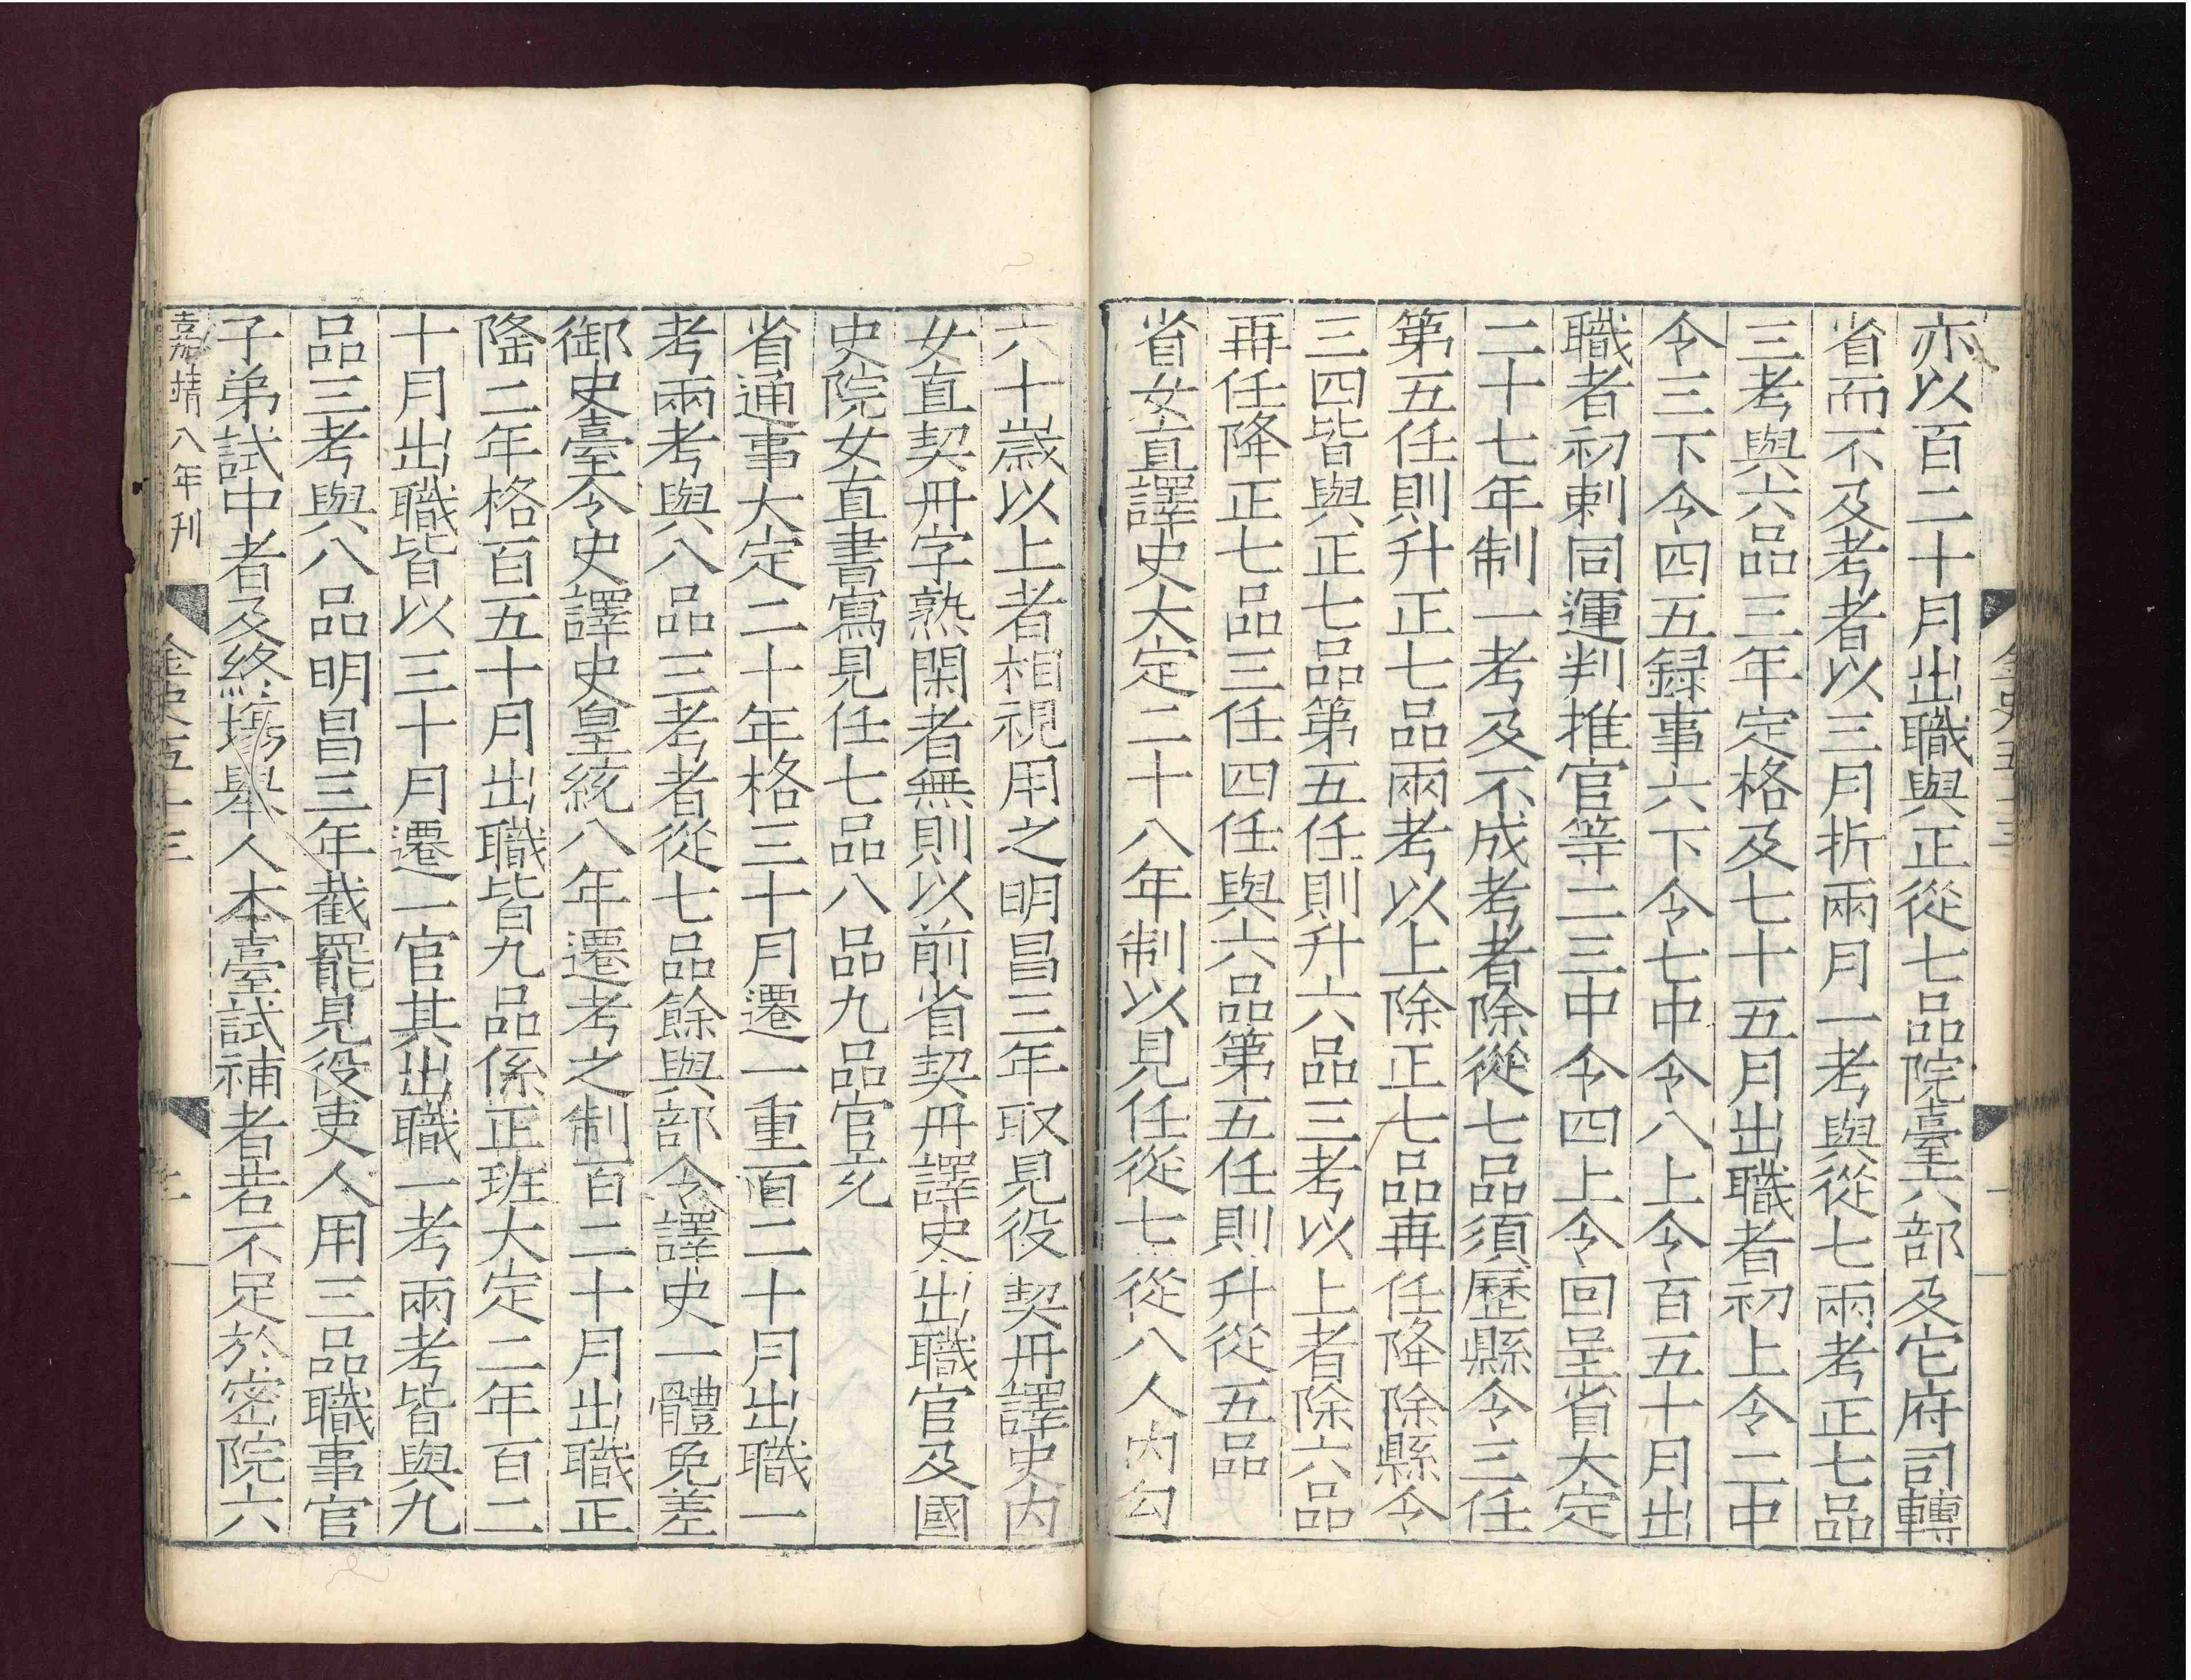 亦以百二十月出職與正從七品院臺六部及它府司轉
省而不及考者以三月折兩月一考與從七兩考正七品
三考與六品三年定格及七十五月出職者初上令二中
令三下令四五録事六下令七中令八上令百五十月出
職者初剌同運判推官等二三中令四上令回呈省大定
二十七年制一考及不成考者除從七品須歷縣令三任
第五任則升正七品兩考以上除正七品再任降除縣令
三四皆與正七品第五任則升六品三考以上者除六品
再任降正七品三任四任與六品第五任則升從五品
省女直譯史大定二十八年制以見任從七從八人内勾
六十歲以上者相視用之明昌三年取見役契丹譯史内
女直契丹字熟閑者無則以前省契丹譯史出職官及國
史院女直書寫見任七品八品九品官充
省通事大定二十年格三十月遷一重百二十月出職一
考兩考與八品三考者從七品餘與部令譯史一體免差
御史臺令史譯史皇統八年遷考之制百二十月出職正
隆二年格百五十月出職皆九品係正班大定二年百二
十月出職皆以三十月遷一官其出職一考兩考皆與九
品三考與八品明昌三年截罷見役吏人用三品職事官
子弟試中者及終場舉人本臺試補者若不足於密院六
嘉靖八年刊
金史五十三
二